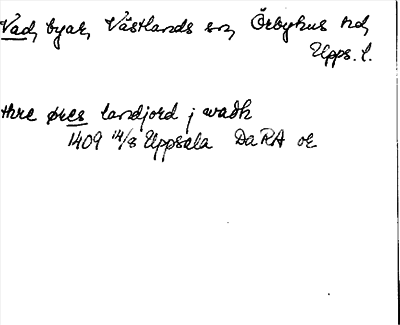 Vad, byar, Västlands sn, Örbyhus hd,
Upps. l.
thre øres landjord j wadh
1409 14/8 Uppsala DaRA or